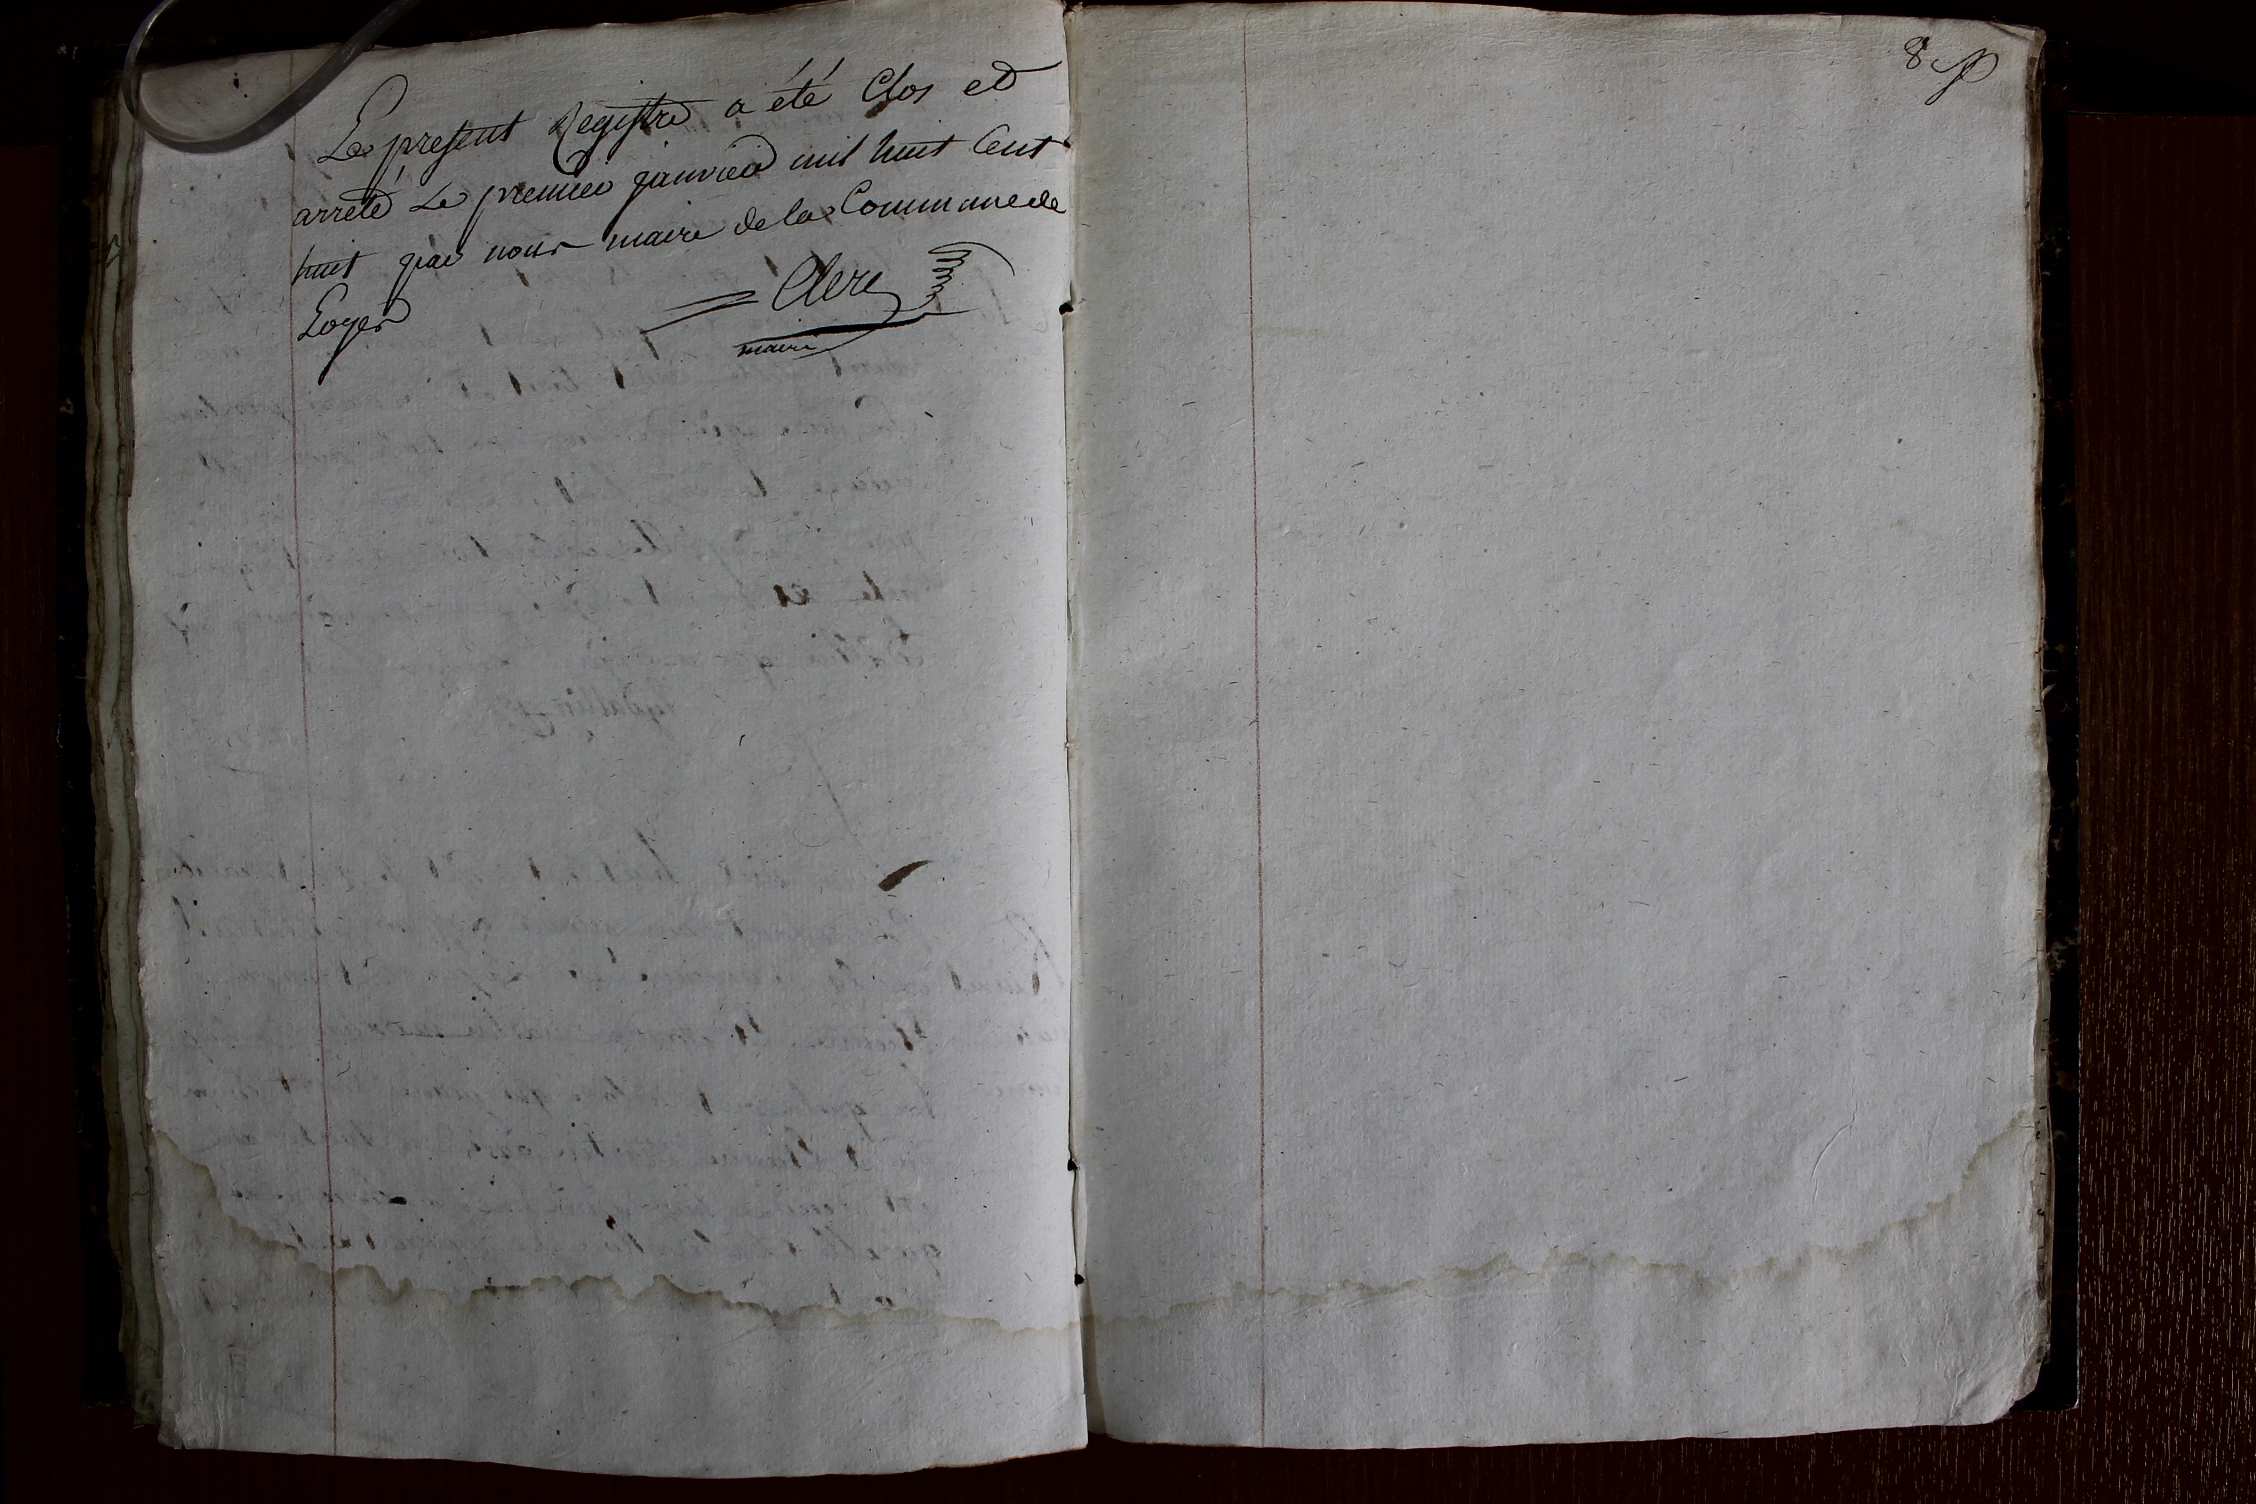 Le present Registre a été Clos et
arrêté Le premier janvier mil huit Cent
huit par nous maire de la Commune de
Loyer
Clerc
maire
8